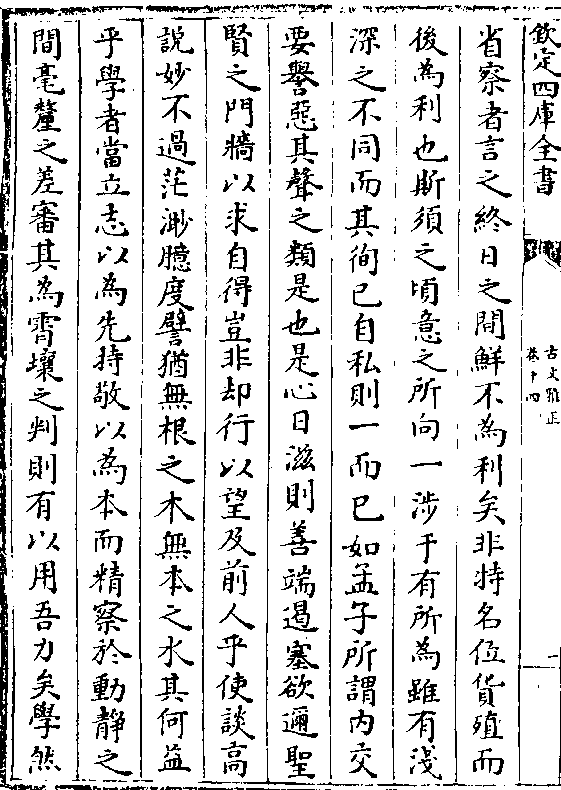 欽定四庫全書
古文雅正
卷十四
省察者言之終日之間鮮不為利矣非特名位貨殖而
後為利也斯須之頃意之所向一涉于有所為雖有淺
深之不同而其徇已自私則一而已如孟子所謂内交
要譽惡其聲之類是也是心日滋則善端遏塞欲邇聖
賢之門牆以求自得豈非却行以望及前人乎使談高
說妙不過茫渺臆度譬猶無根之木無本之水其何益
乎學者當立志以為先持敬以為本而精察於動靜之
間毫釐之差審其為霄壤之判則有以用吾力矣學然